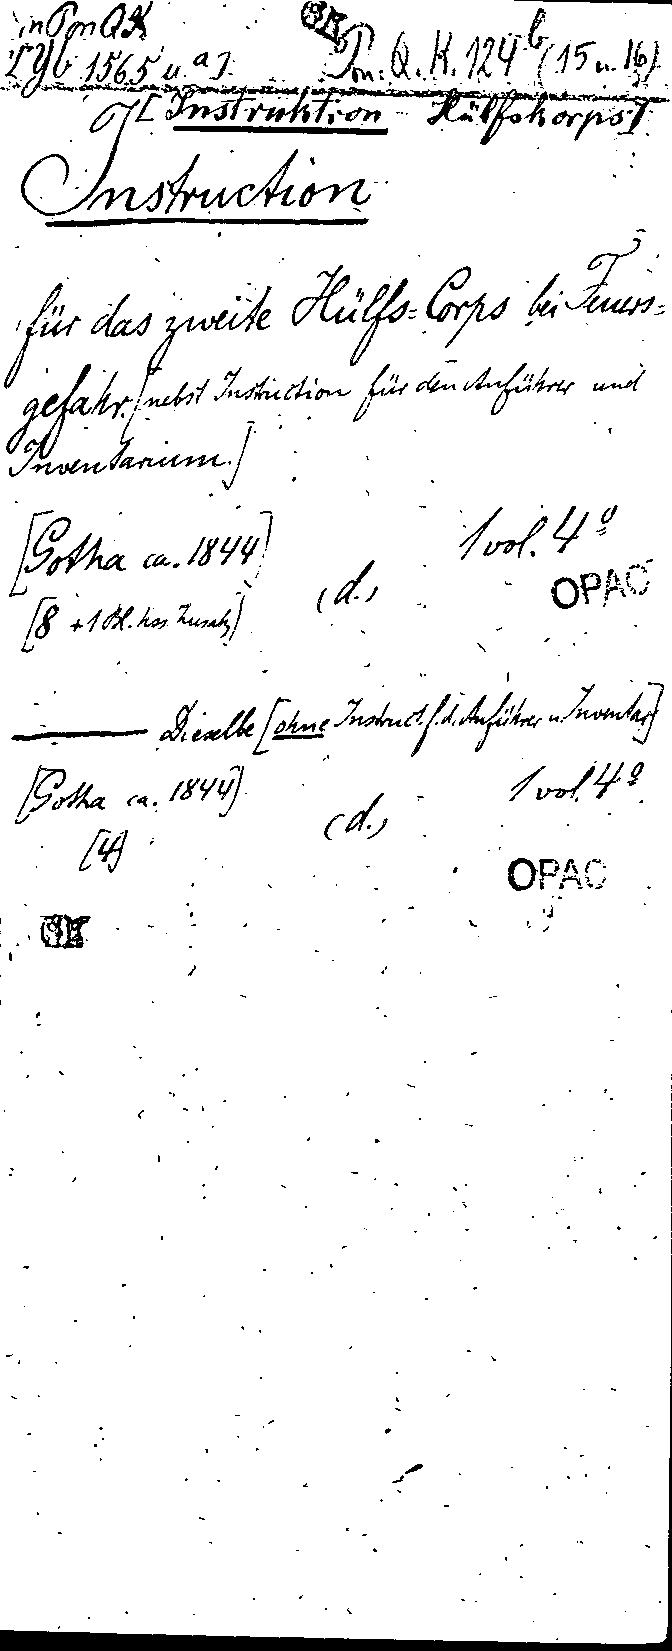 in Pon QK
[Yb 1565 u.a] Pon. Q. K. 124 b (15 u. 16)
[Instruktion Hülfskorps]
Instruction
für das zweite Hülfs=Corps bei Feuers=
gefahr. [nebst Instruction für den Anführer und
Inventarium.]
[Gotha ca. 1844] 1 vol. 4º
(d.) OPAC
[8 + 1 Bl. hss Zusatz]
Dieselbe [ohne Instruct. f. d. Anführer u Inventar]
[Gotha ca. 1844] 1 vol. 4º
(d.)
[4]
OPAC
GK